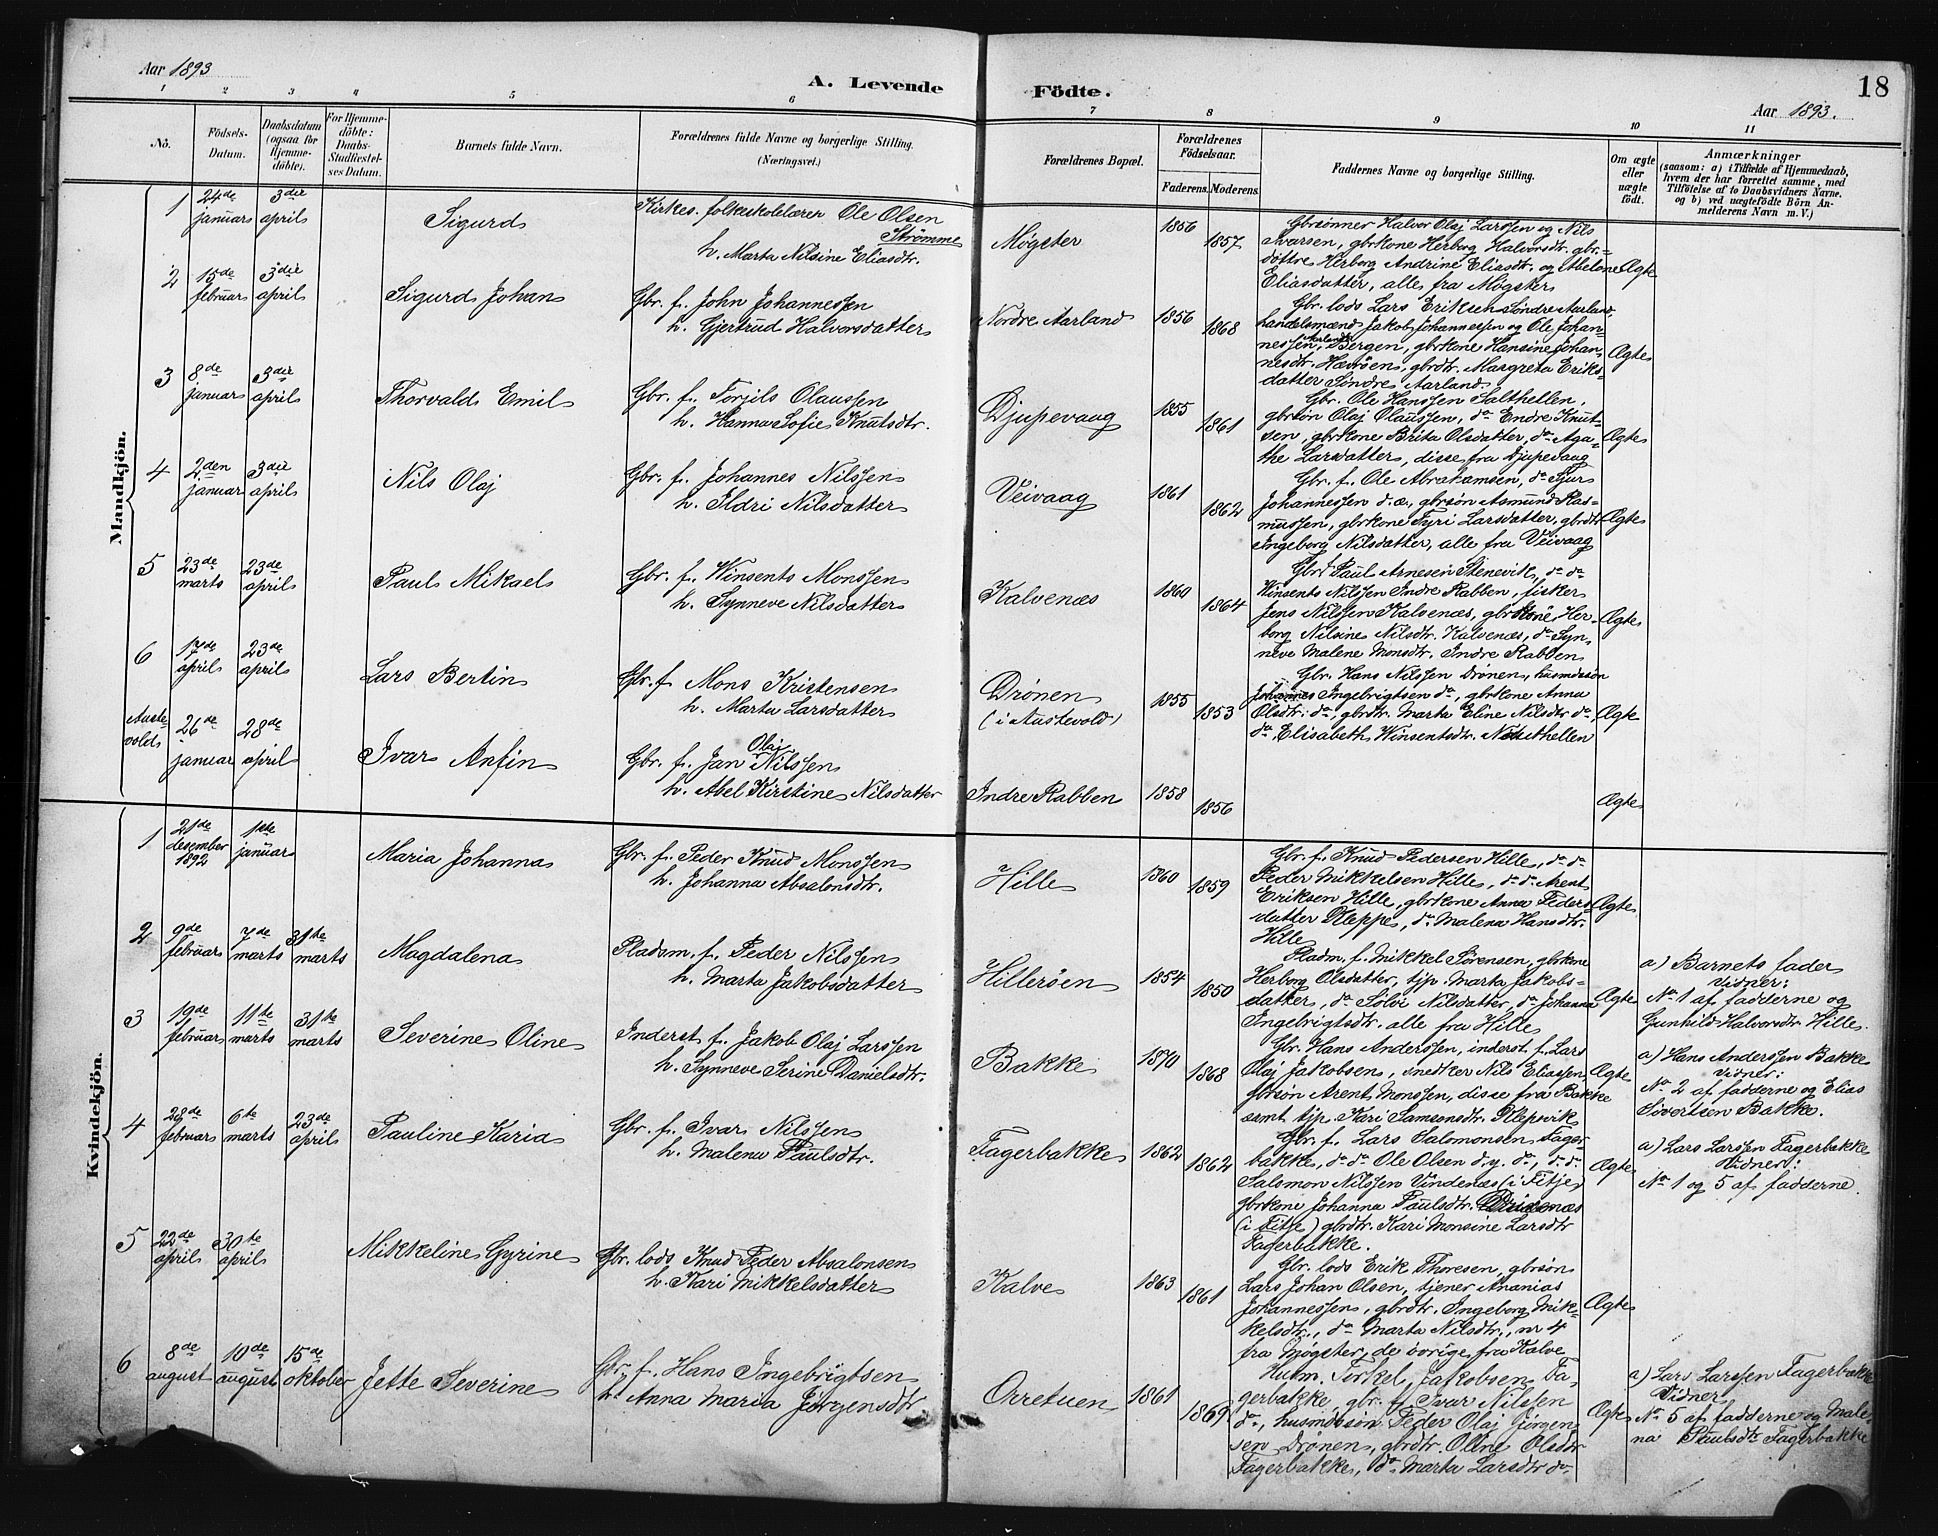 Aar 1893
A. Levende Födte.
18
Aar 1893.
1 2 3 4 5 6 7 8 9 10 11
No.
Födsels-
Datum.
Daabsdatum
(ogsaa for
Hjemme-
döbte).
For Hjemme-
döbte:
Daabs-
Stadfæstel-
ses Datum.
Barnets fulde Navn.
Forældrenes fulde Navne og borgerlige Stilling.
(Næringsvei.)
Forældrenes Bopæl.
Forældrenes
Födselsaar.
Faderens. Moderens.
Faddernes Navne og borgerlige Stilling.
Om ægte
eller
uægte
födt.
Anmærkninger
(saasom: a) i Tilfælde af Hjemmedaab,
hvem der har forrettet samme, med
Tilföielse af to Daabsvidners Navne.
og b) ved uægtefödte Börn An-
melderens Navn m. V.)
Mandkjön.
1
24de
januar
3die
april
Sigurd
Kirkes. folkeskolelærer Ole Olsen
Strömme
h. Marta Nilsine Eliasdtr.
Møgster
1856
1857
Gbrsønner Halvor Olaj Larssen og Nils
Ivarsen, gbrkone Herborg Halvorsdtr. gbr.-
døttre Herborg Andrine Eliasdtr. og Abelone
Eliasdatter, alle fra Møgster
Ægte
2
15de
februar
3die
april
Sigurd Johan
Gbr. f. John Johannessen
h. Gjertrud Halvorsdatter
Nordre Aarland
1856
1868
Gbr. lods Lars Eriksen Söndre Aarland,
handelsmænd Jakob Johannessen og Ole Johan-
nessen, Aarland Bergen, gbrkone Hansine Johan-
nesdtr. Hævröen, gbrdtr. Margreta Eriks-
datter Söndre Aarland.
Ægte
3
8de
januar
3die
april
Thorvald Emil
Gbr. f. Torjils Olaussen
h. Hanna Sofie Knutsdtr.
Djupevaag
1855
1861
Gbr. Ole Hanssen Salthellen,
gbrsön Olaj Olaussen, do Endre Knut-
sen, gbrkone Brita Olsdatter, do Aga-
the Larsdatter, disse fra Djupevaag
Ægte
4
2den
januar
3die
april
Nils Olaj
Gbr. f. Johannes Nilssen
h. Ildri Nilsdatter
Veivaag
1861
1862
Gbr. f. Ole Abrahamsen, do Sjur
Johannessen d.æ., gbrsön Asmund Ras-
mussen, gbrkone Fyri Larsdatter, gbrdtr
Ingeborg Nilsdatter, alle fra Veivaag
Ægte
5
23de
marts
23de
april
Paul Mikael
Gbr. f. Winsents Monssen
h. Synneve Nilsdatter
Kalvenæs
1860
1864
Gbrf Paul Arnesen Stenevik, do do
Winsents Nilssen Indre Rabben, fisker
Jens Nilssen Kalvenæs, gbrkone Her-
borg Nilsine Nilsdtr. Kalvenæs, do Syn-
neve Malene Monsdtr. Indre Rabben
Ægte
6
17de
april
23de
april
Lars Bertin
Gbr. f. Mons Kristensen
h. Marta Larsdatter
Drönen
(i Austevold)
1855
1853
Gbr. Hans Nilssen Drönen, husmdssön
Johannes Ingebrigtsen do, gbrkone Anna
Olsdtr. do, gbrdtr. Marta Eline Nilsdtr do,
do Elisabeth Winsentsdtr. Nautthellen
Ægte
Auste-
vold
26de
januar
28de
april
Ivar Anfin
Gbr. f. Jan Olaj Nilssen
h. Abel Kirstine Nilsdatter
Indre Rabben
1858
1856
Ægte
Kvindekjön.
1
21de
desember
1892
1ste
januar
Maria Johanna
Gbr. f. Peder Knud Monssen
h. Johanna Absalonsdtr.
Hille
1860
1859
Gbr. f. Knud Pedersen Hille, do do
Peder Mikkelsen Hille, do do Arent
Eriksen Hille, gbrkone Anna Peders-
datter Kleppe, do Malena Hansdtr.
Hille
Ægte
2
9de
februar
7de
marts
31te
marts
Magdalena
Pladsm. f. Peder Nilssen
h. Marta Jakobsdatter
Hilleröen
1854
1850
Pladm. f. Mikkel Sörensen, gbrkone
Herborg Olsdatter, tjp. Marta Jakobs-
datter, do Sölvi Nilsdatter, do Johanna
Ingebrigtsdtr. alle fra Hille
Ægte
a) Barnets fader
Vidner:
No 1 af fadderne og
Gunhild Halvorsdtr. Hille.
3
19de
februar
11te
marts
31te
marts
Severine Oline
Inderst f. Jakob Olaj Larssen
h. Synneve Serine Danielsdtr.
Bakke
1870
1868
Gbr. Hans Anderssen, inderst f. Lars
Olaj Jakobsen, snedker Nils Eliassen,
gbrsön Arent Monssen, disse fra Bakke
samt tjp. Kari Samsonsdtr. Klepsvik
Ægte
a) Hans Anderssen Bakke
Vidner:
No 2 af fadderne og Elias
Sivertsen Bakke.
4
28de
februar
6te
marts
23de
april
Pauline Karia
Gbr. f. Ivar Nilssen
h. Malena Paulsdtr.
Fagerbakke
1862
1862
Gbr. f. Lars Salomonsen Fager-
bakke, do do Ole Olsen d.y. do, do do
Salomon Nilssen Vindenæs (i Fitje)
gbrkone Johanna Paulsdtr.
(i Fitje) gbrdtr. Kari Monsine Larsdtr
Fagerbakke.
Ægte
a) Lars Larssen Fagerbakke
Vidner:
No 1 og 5 af fadderne.
5
22de
april
30te
april
Mikkeline Gyrine
Gbr. lods Knud Peder Absalonsen
h. Kari Mikkelsdatter
Kalve
1863
1861
Gbr. lods Erik Thoresen, gbrsön
Lars Johan Olsen, tjener Ananias
Johannessen, gbrdtr. Ingeborg Mik-
kelsdtr., do Marta Nilsdtr., nr 4
fra Møgster, de övrige fra Kalve
Ægte
6
8de
august
10de
august
15de
oktober
Jette Severine
Gbr. f. Hans Ingebrigtsen
h. Anna Maria Jörgensdtr
Orretuen
1861
1869
Husm. Torkel Jakobsen Fa-
gerbakke, gbr. f. Ivar Nilssen
do, husmdssön Peder Olaj Jörgen-
sen Drönen, gbrdtr. Oline Olsdtr
Fagerbakke, do Marta Larsdtr do
Ægte
a) Lars Larssen Fagerbakke
Vidner
No 5 af fadderne og Male-
na Paulsdtr Fagerbakke